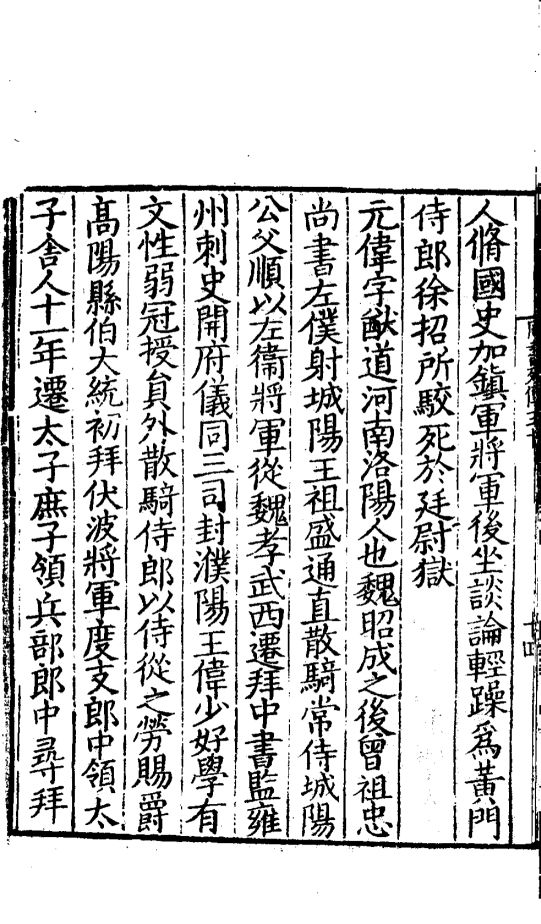 人脩國史加鎮軍將軍後坐談論輕躁爲黃門
侍郎徐招所駮死於廷尉獄
元偉字猷道河南洛陽人也魏昭成之後曾祖忠
尚書左僕射城陽王祖盛通直散騎常侍城陽
公父順以左衞將軍從魏孝武西遷拜中書監雍
州刺史開府儀同三司封濮陽王偉少好學有
文性弱冠授員外散騎侍郎以侍從之勞賜爵
高陽縣伯大統初拜伏波將軍度支郎中領太
子舍人十一年遷太子庶子領兵部郎中尋拜